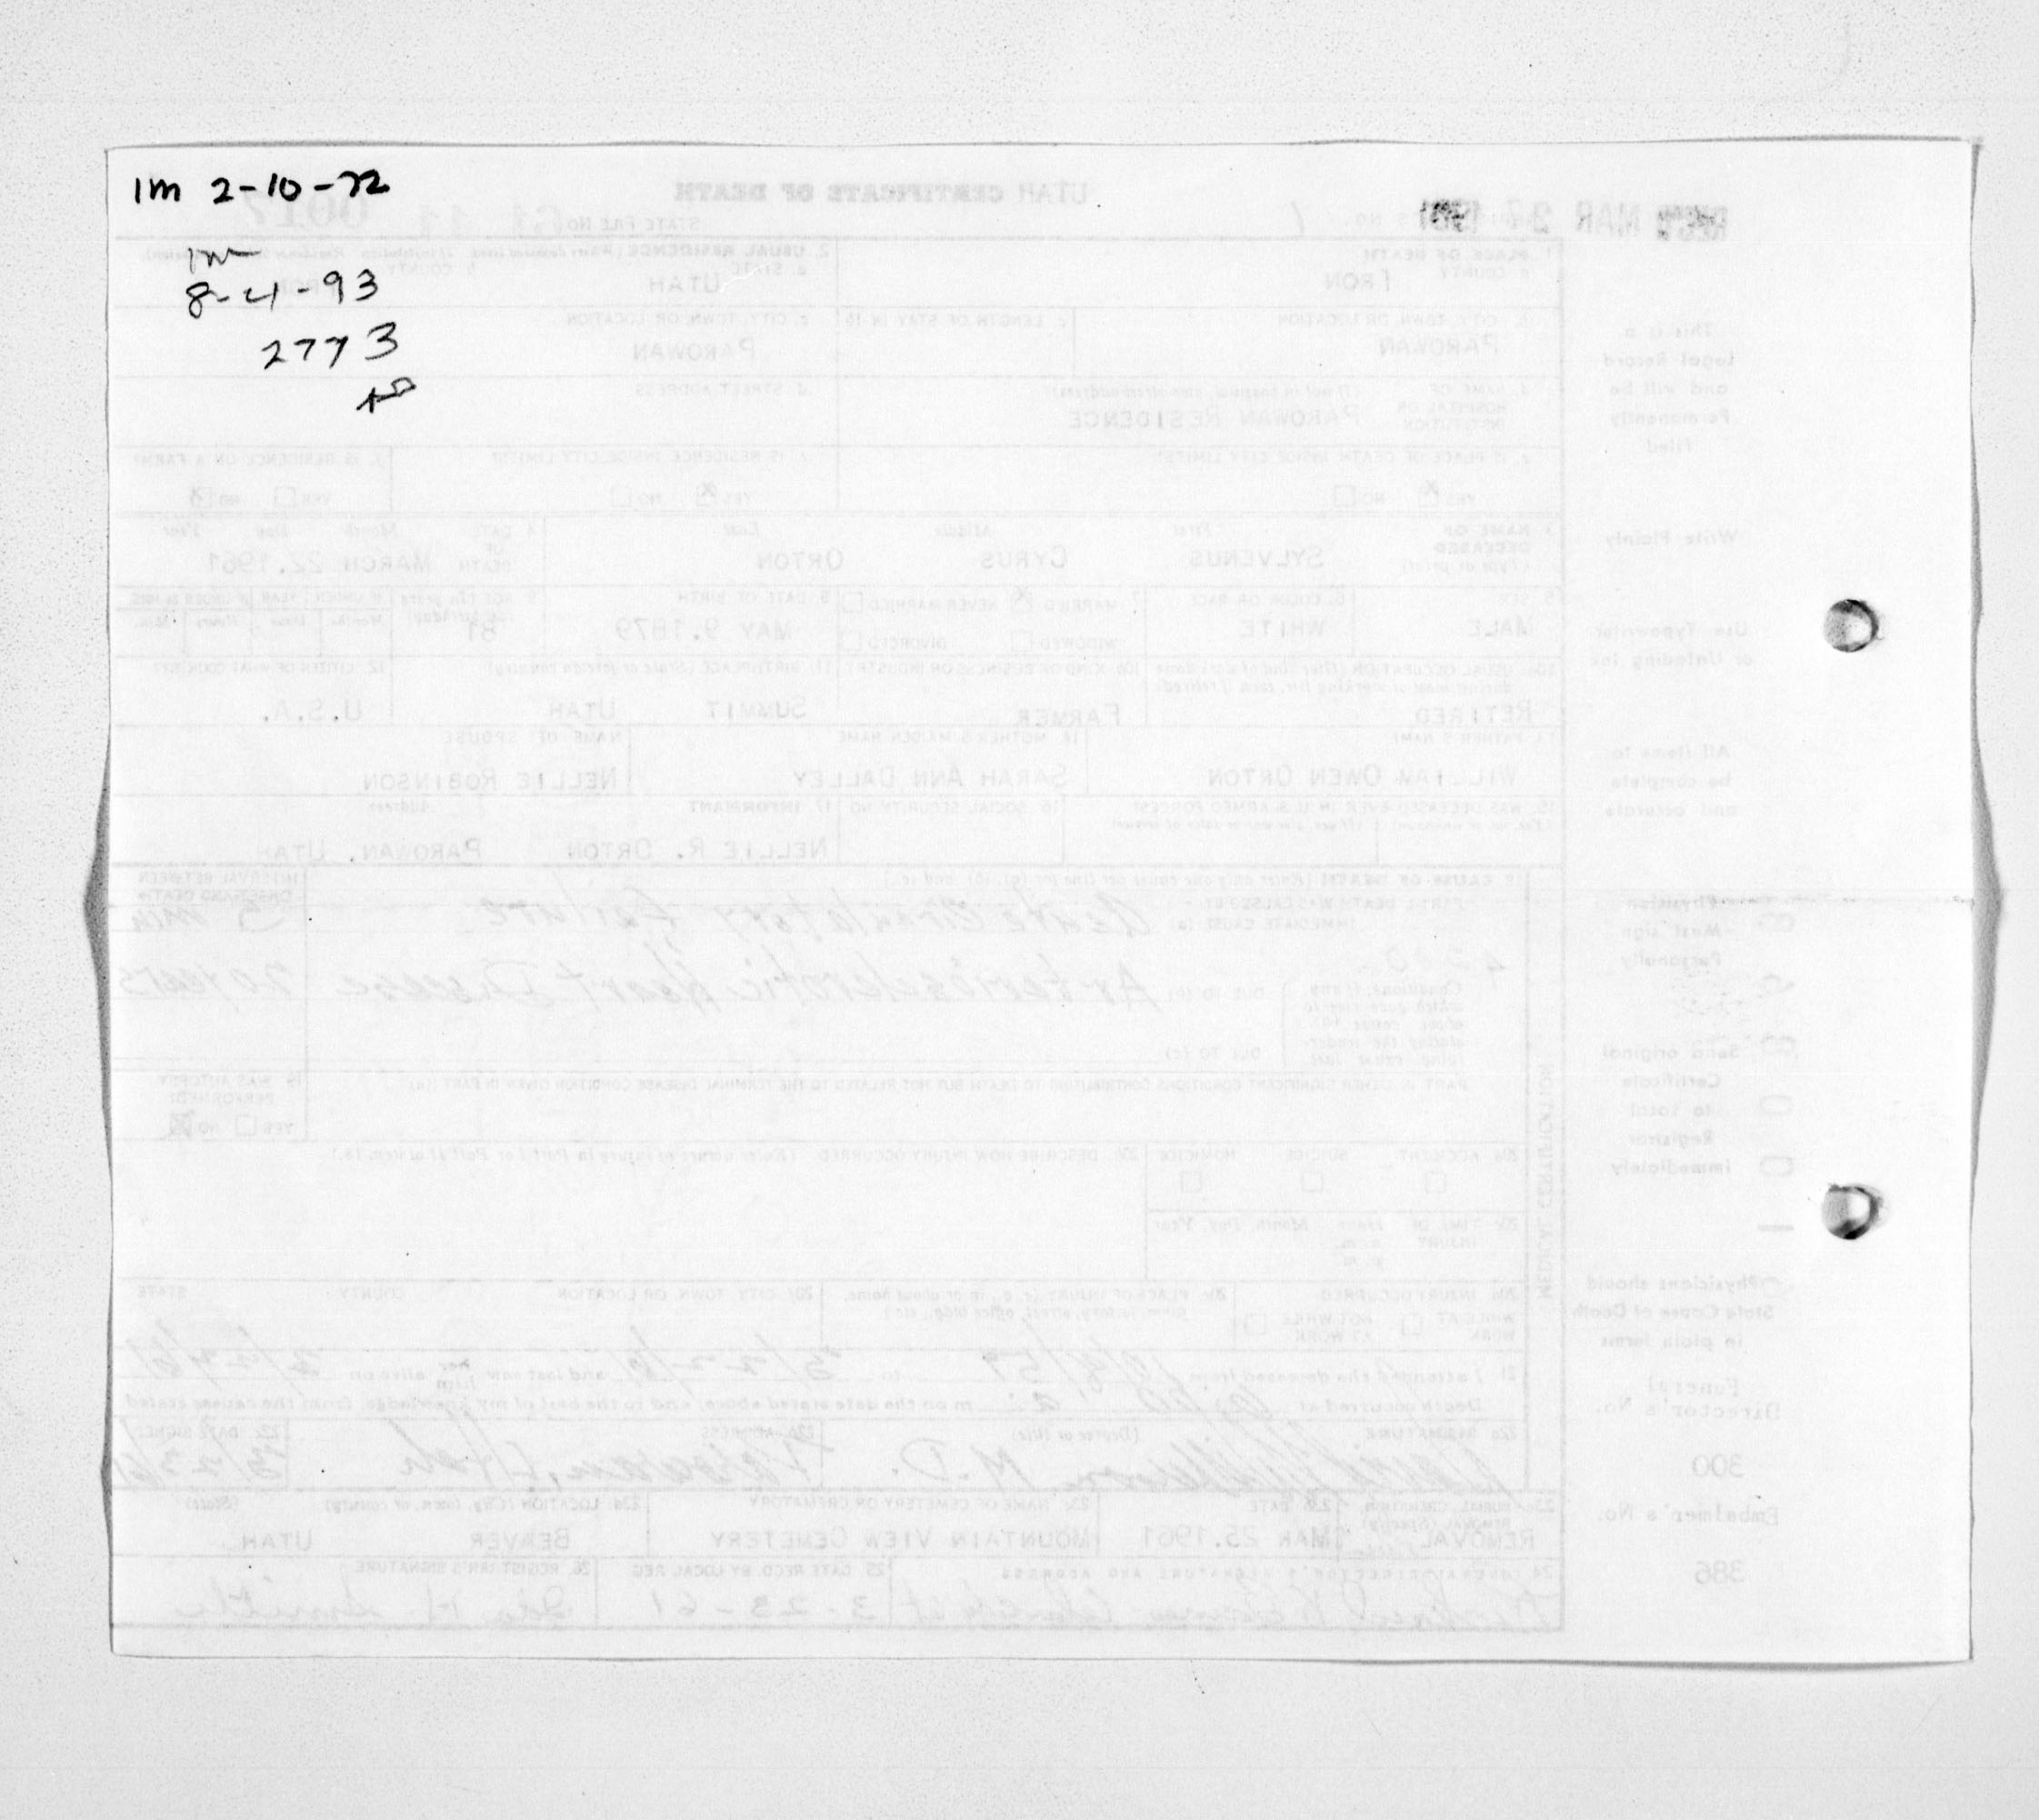 1m 2-10-72
1m
8-4-93
2773
UTAH CERTIFICATE OF DEATH
REC'D MAR 27 1961
STATE FILE No. 61 11 0017
1. PLACE OF DEATH
a. COUNTY IRON
2. USUAL RESIDENCE
a. STATE UTAH
b. COUNTY IRON
b. CITY, TOWN OR LOCATION PAROWAN
c. LENGTH OF STAY IN 1b
c. CITY, TOWN OR LOCATION PAROWAN
d. NAME OF HOSPITAL OR INSTITUTION (If not in hospital, give street address) PAROWAN RESIDENCE
d. STREET ADDRESS
e. IS PLACE OF DEATH INSIDE CITY LIMITS? YES X NO
e. IS RESIDENCE INSIDE CITY LIMITS? YES X NO
f. IS RESIDENCE ON A FARM? YES NO X
3. NAME OF DECEASED (Type or print) First Middle Last
SYLVENUS CYRUS ORTON
4. DATE OF DEATH Month Day Year
MARCH 22, 1961
5. SEX MALE
6. COLOR OR RACE WHITE
7. MARRIED X NEVER MARRIED
WIDOWED DIVORCED
8. DATE OF BIRTH MAY 9, 1879
9. AGE (In years last birthday) 81
10a. USUAL OCCUPATION RETIRED
10b. KIND OF BUSINESS OR INDUSTRY FARMER
11. BIRTHPLACE (State or foreign country) SUMMIT UTAH
12. CITIZEN OF WHAT COUNTRY? U.S.A.
13. FATHER'S NAME WILLIAM OWEN ORTON
14. MOTHER'S MAIDEN NAME SARAH ANN DALLEY
NAME OF SPOUSE NELLIE ROBINSON
15. WAS DECEASED EVER IN U.S. ARMED FORCES?
16. SOCIAL SECURITY NO.
17. INFORMANT Address
NELLIE R. ORTON PAROWAN, UTAH
18. CAUSE OF DEATH (Enter only one cause per line for (a), (b), and (c).)
INTERVAL BETWEEN ONSET AND DEATH
PART I. DEATH WAS CAUSED BY:
IMMEDIATE CAUSE (a) Acute Circulatory Failure 5 min
DUE TO (b) Arteriosclerotic Heart Disease 20 years
Conditions, if any, which gave rise to above cause (a), stating the underlying cause last
DUE TO (c)
PART II. OTHER SIGNIFICANT CONDITIONS CONTRIBUTING TO DEATH BUT NOT RELATED TO THE TERMINAL DISEASE CONDITION GIVEN IN PART I (a)
19. WAS AUTOPSY PERFORMED? YES NO X
20a. ACCIDENT SUICIDE HOMICIDE
20b. DESCRIBE HOW INJURY OCCURRED. (Enter nature of injury in Part I or Part II of item 18.)
20c. TIME OF INJURY Hour Month, Day, Year
a.m.
p.m.
20d. INJURY OCCURRED
WHILE AT WORK NOT WHILE AT WORK
20e. PLACE OF INJURY (e.g., in or about home, farm, factory, street, office bldg., etc.)
20f. CITY, TOWN, OR LOCATION COUNTY STATE
MEDICAL CERTIFICATION
21. I attended the deceased from to 3/22/61 and last saw him alive on
Death occurred at m on the date stated above, and to the best of my knowledge, from the causes stated
22a. SIGNATURE (Degree or title) M.D.
22b. ADDRESS Parowan, Utah
22c. DATE SIGNED 3/23/61
23a. BURIAL, CREMATION, REMOVAL (Specify) REMOVAL
23b. DATE MAR 25, 1961
23c. NAME OF CEMETERY OR CREMATORY MOUNTAIN VIEW CEMETERY
23d. LOCATION (City, town, or county) (State)
BEAVER UTAH
24. FUNERAL DIRECTOR'S SIGNATURE AND ADDRESS
25. DATE RECD. BY LOCAL REG. 3-23-61
26. REGISTRAR'S SIGNATURE
Ida H. Smith
This is a
Legal Record
and will be
Permanently
Filed
Write Plainly
Use Typewriter
or Unfading Ink
All items to
be complete
and accurate
Physician
Must sign
Personally
Send original
Certificate
to Local
Registrar
immediately
Physicians should
State Cause of Death
in plain terms
Funeral
Director's No.
300
Embalmer's No.
386